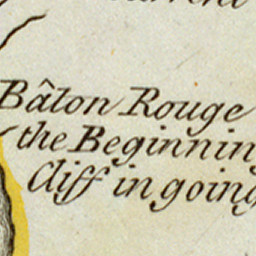 Bâton Rouge
the Beginning
Cliff in going